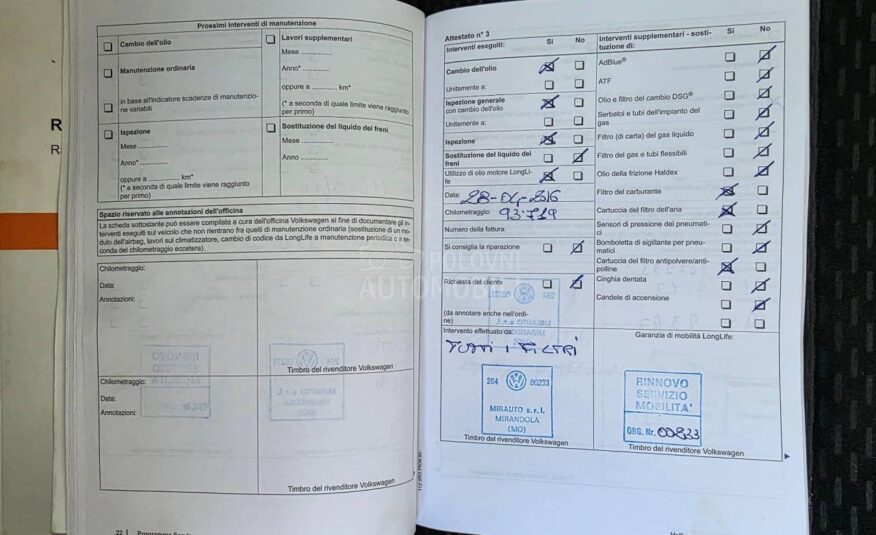 Prossimi interventi di manutenzione
Cambio dell'olio
Manutenzione ordinaria
in base all'indicatore scadenze di manutenzio-
ne variabili
Ispezione
Mese
Anno*
oppure a km*
(* a seconda di quale limite viene raggiunto
per primo)
Lavori supplementari
Mese
Anno*
oppure a km*
(* a seconda di quale limite viene raggiunto
per primo)
Sostituzione del liquido dei freni
Mese
Anno
Spazio riservato alle annotazioni dell'officina
La scheda sottostante può essere compilata a cura dell'officina Volkswagen al fine di documentare gli in-
terventi eseguiti sul veicolo che non rientrano fra quelli di manutenzione ordinaria (sostituzione di un mo-
dulo dell'airbag, lavori sul climatizzatore, cambio di codice da LongLife a manutenzione periodica o a se-
conda del chilometraggio eccetera).
Chilometraggio:
Data:
Annotazioni:
Timbro del rivenditore Volkswagen
Chilometraggio:
Data:
Annotazioni:
Timbro del rivenditore Volkswagen
22
Attestato n° 3
Interventi eseguiti: Sì No
Cambio dell'olio
Unitamente a:
Ispezione generale
con cambio dell'olio
Unitamente a:
Ispezione
Sostituzione del liquido dei
freni
Utilizzo di olio motore LongLi-
fe
Data: 28-04-2016
Chilometraggio: 93719
Numero della fattura:
Si consiglia la riparazione
Richiesta del cliente
(da annotare anche nell'ordi-
ne)
Intervento effettuato da:
TUTTI I FILTRI
264 00233
MIRAUTO s.r.l.
MIRANDOLA
(MO)
Timbro del rivenditore Volkswagen
Interventi supplementari - sosti-
tuzione di: Sì No
AdBlue®
ATF
Olio e filtro del cambio DSG®
Serbatoi e tubi dell'impianto del
gas
Filtro (di carta) del gas liquido
Filtro del gas e tubi flessibili
Olio della frizione Haldex
Filtro del carburante
Cartuccia del filtro dell'aria
Sensori di pressione dei pneumati-
ci
Bomboletta di sigillante per pneu-
matici
Cartuccia del filtro antipolvere/anti-
polline
Cinghia dentata
Candele di accensione
Garanzia di mobilità LongLife:
RINNOVO
SERVIZIO
MOBILITA'
ORG. Nr. 00233
Timbro del rivenditore Volkswagen
POLOVNI
AUTOMOBILI